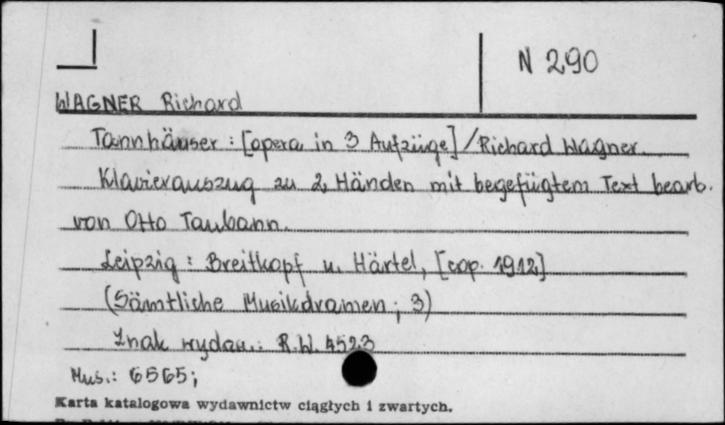 N 290
WAGNER Richard
Tannhäuser : [opera in 3 Aufzüge] / Richard Wagner.
Klavierauszug zu 2 Händen mit begefügtem Text bearb.
von Otto Taubann.
Leipzig : Breitkopf u. Härtel, [cop. 1912]
(Sämtliche Musikdramen ; 3)
Znak wydaw.: R.W. 4523
Mus.: 6565;
Karta katalogowa wydawnictw ciągłych i zwartych.